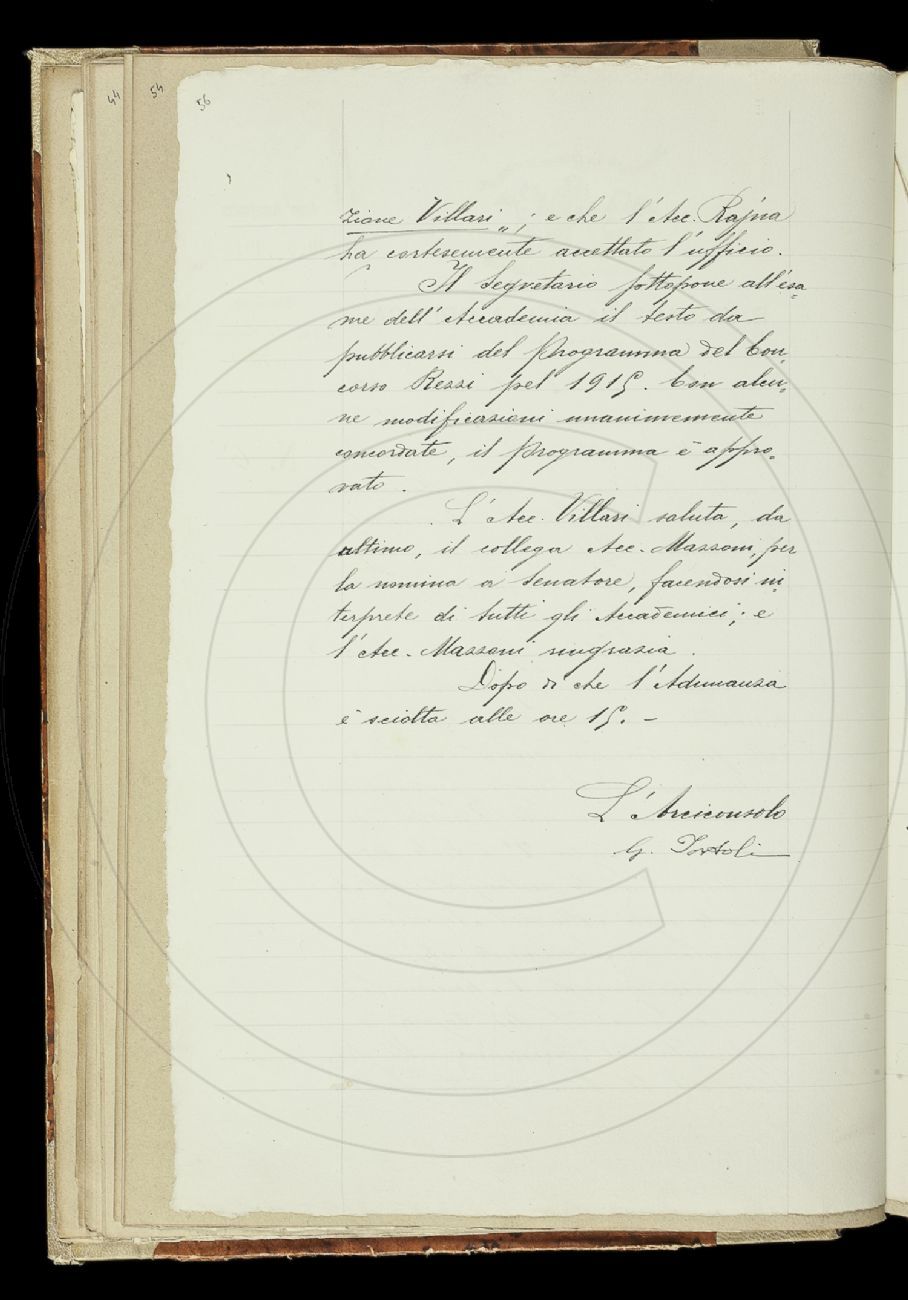 44
54
56
zione Villari „ ; e che l'Acc. Rajna
ha cortesemente accettato l'ufficio.
Il Segretario sottopone all'esa=
me dell'Accademia il testo da
pubblicarsi del Programma del Con=
corso Rezzi pel 1915. Con alcu=
ne modificazioni unanimemente
concordate, il Programma è appro=
vato.
L'Acc. Villari saluta, da
ultimo, il collega Acc. Mazzoni, per
la nomina a Senatore, facendosi in=
terprete di tutti gli Accademici; e
l'Acc. Mazzoni ringrazia.
Dopo di che l'Adunanza
è sciolta alle ore 15. –
L'Arciconsolo
G. Tortoli